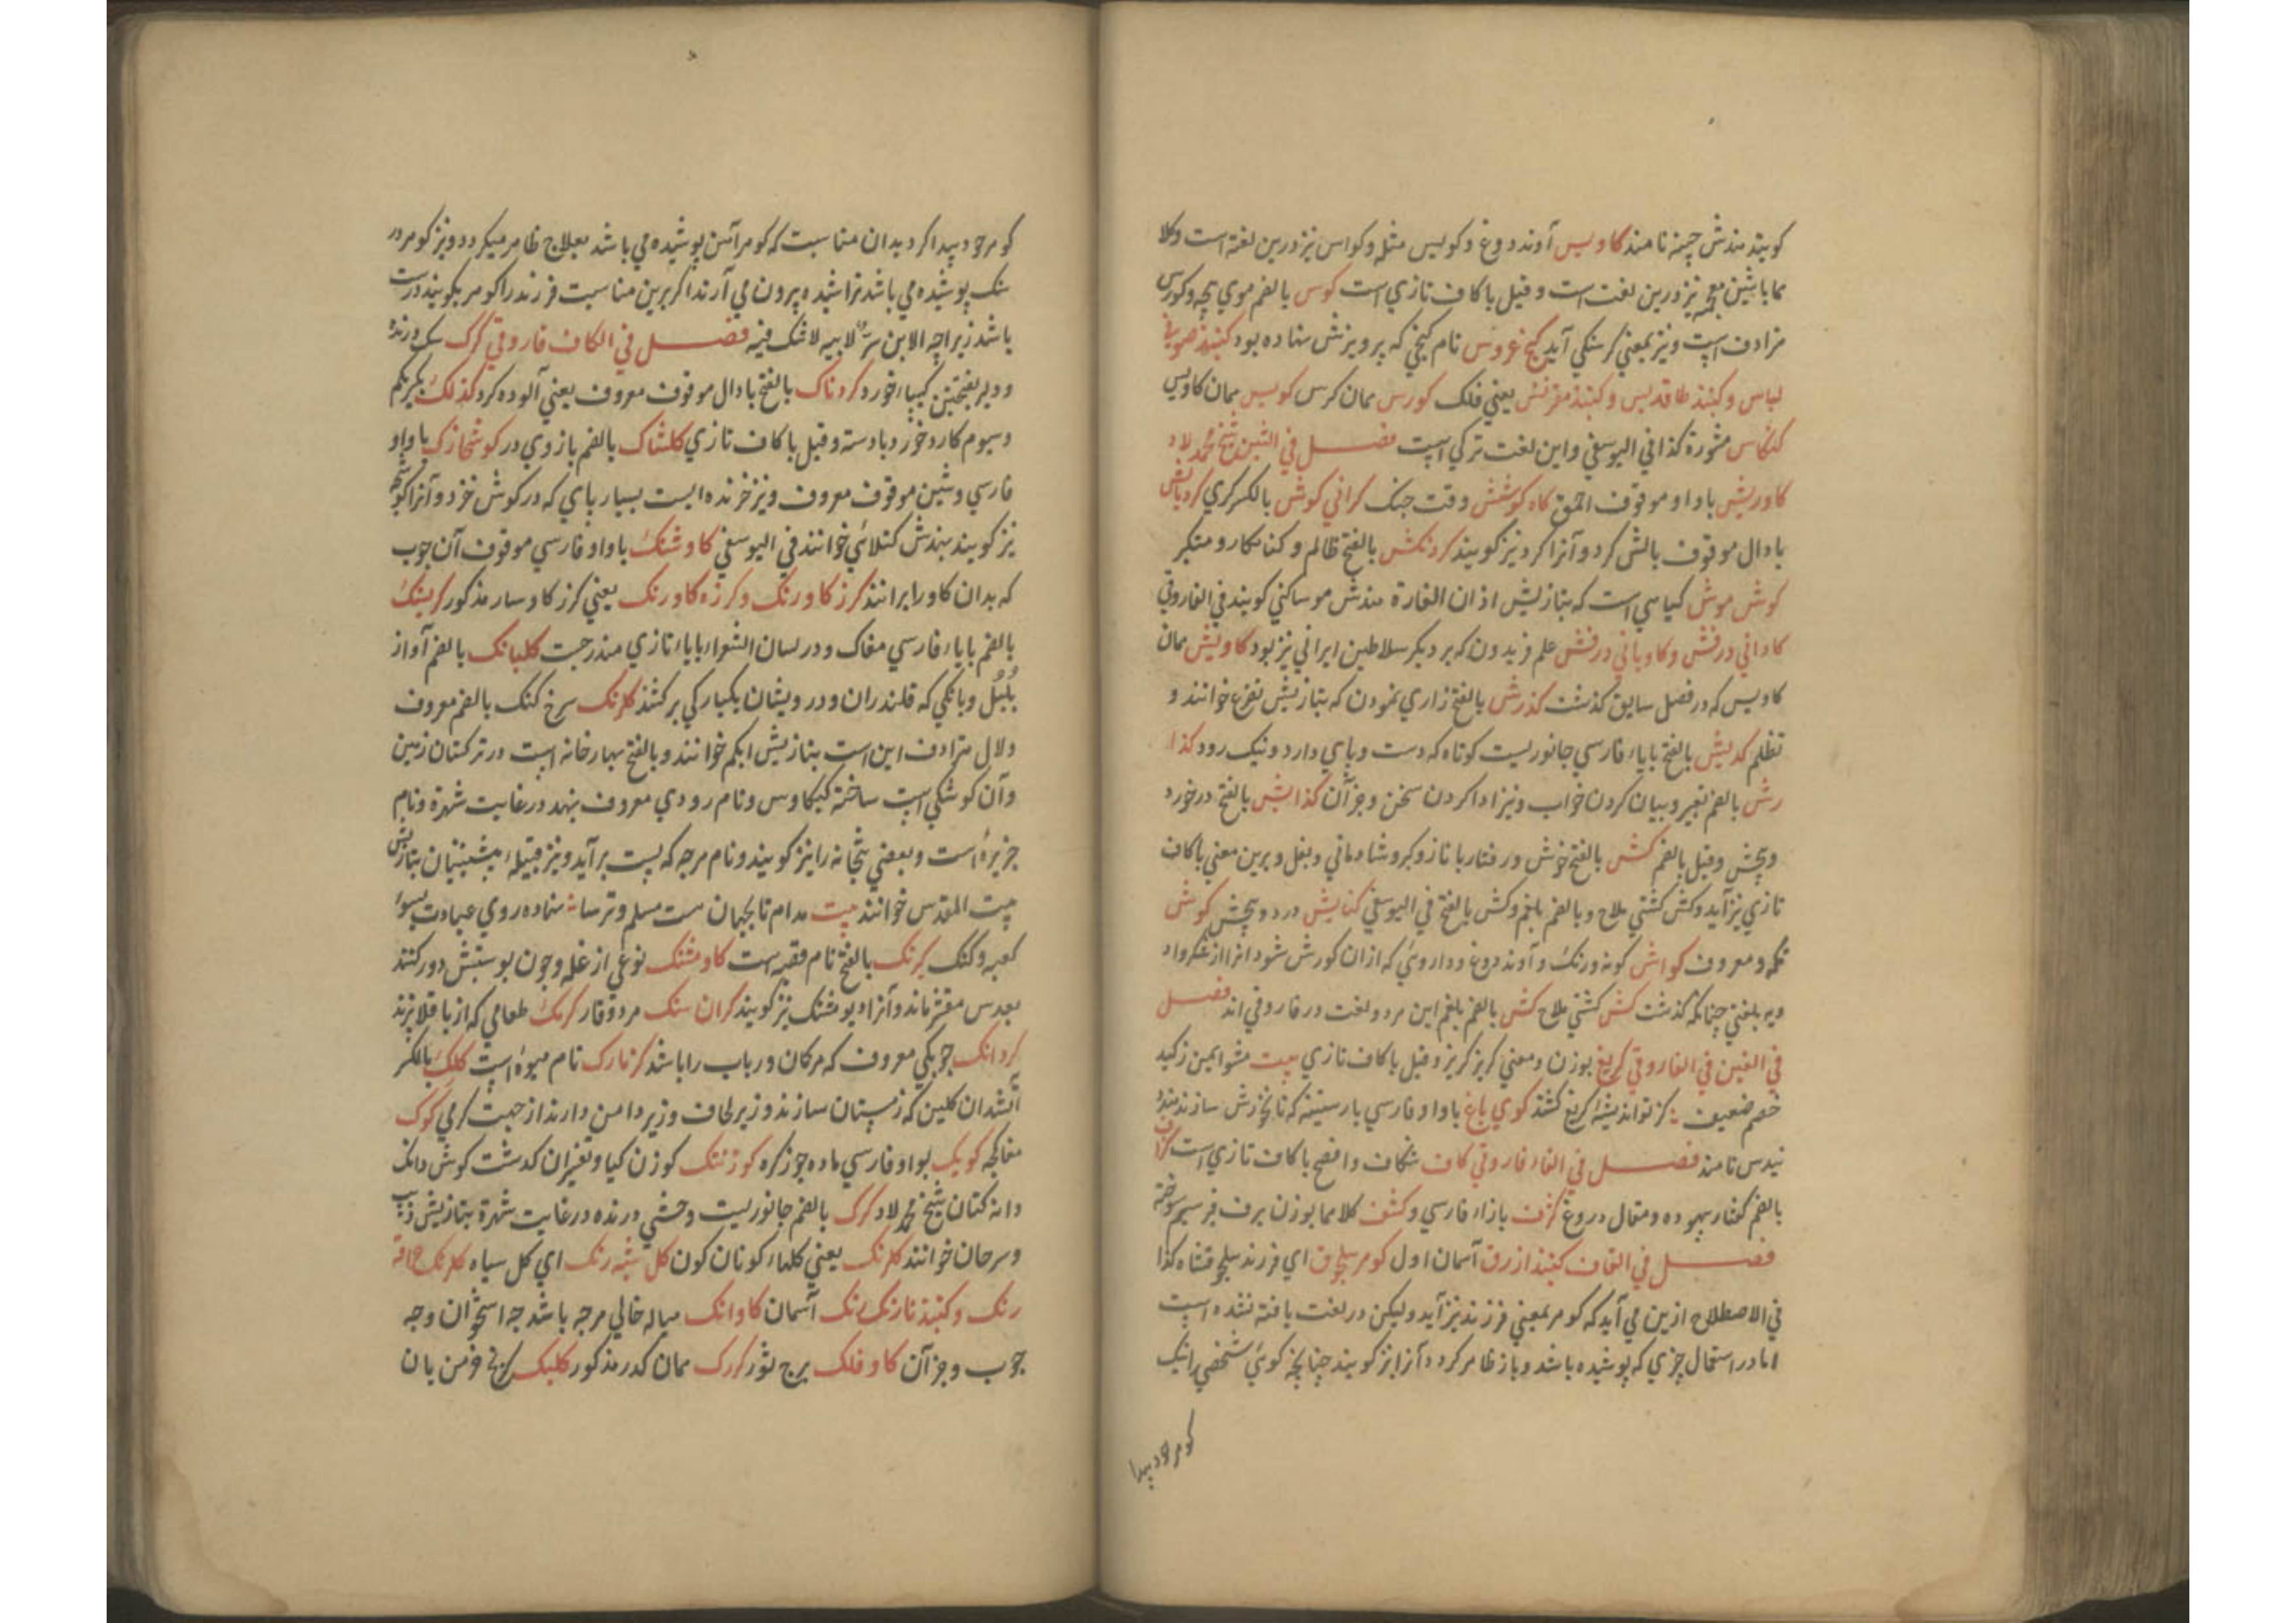 کویند هندش چینه نامند کاویس آوند دوغ و کویس مثله و کواس نیز درین لغة است وکلا
هما باشین معجمه نیز درین لغت است و قیل باکاف تازی است کوس بالضم موی بچه وکورس
مرادف است و نیز بمعنی کرسنکی آید کنج عروس نام کنجی که پرویزش نهاده بود کنبند صوفی
لباس و کنبند طاقدیس و کنبند مقرنس یعنی فلک کورس همان کرس کویس همان کاویس
کنکاس مشورة کذا فی الیوسفی واین لغت ترکی است فصل فی الشین شیخ محمد لاد
کاوریش باواو موقوف احمق کاه کوشش وقت جنک کرانی کوش بالکسر کری کرد بالش
بادال موقوف بالش کرد و آنرا کرد نیز کویند کردنکش بالفتح ظالم و کناهکار و متکبر
کوش موش کیاهی است که بتازیش اذان الفارة هندش موساکنی کویند فی الفاروقی
کادانی درفش وکاویانی درفش علم فریدون که بر دیکر سلاطین ایرانی نیز بود کاویش همان
کاویس که در فصل سابق کذشت کذرش بالفتح زاری نمودن که بتازیش تضرع خوانند و
تظلم کدپش بالفتح بایاء فارسی جانوریست کوتاه که دست و پای دارد و نیک رود کذا
رش بالضم تعبیر و بیان کردن خواب و نیز ادا کردن سخن و جز آن کذایش بالفتح درخورد
و بخش و قیل بالضم کش بالفتح خوش و رفتار با ناز و کبر و شادمانی و بغل و برین معنی باکاف
تازی نیز آید وکش کشتی ملاح و بالضم بلغم وکش بالفتح فی الیوسفی کنایش درد و بخش کوش
نکه و معروف کواش کونه و رنک و آوند دوغ و داروئی که ازان کورش شود انرا از عکرواد
ویه بلغتی چنانکه کذشت کش کشتی ملاح کش بالضم بلغم این هر دو لغت در فاروقی اند فصل
فی الغین فی الفاروقی کریغ بوزن و معنی کریز کریز و قیل باکاف تازی بیت مشو ایمن ز کید
خصم ضعیف کز تو اندیشهٔ کریغ کشد کوی باغ باواو فارسی بارستینه که نانخورش سازند هندو
تیدس نامند فصل فی الفاء فاروقی کاف شکاف و افصح باکاف تازی است کزاف
بالضم کفتار بیهوده و مقال دروغ کزف بازاء فارسی و کشف کلاهما بوزن برف قیر سیم سوخته
فصل فی القاف کنبند ازرق آسمان اول کوهر سلجوق ای فرزند سلجوقشاه کذا
فی الاصطلاح ازین می آید که کوهر بمعنی فرزند نیز آید ولیکن در لغت یافته نشده است
اما در استعمال چیزی که پوشیده باشد و باز ظاهر کردد آنرا نیز کویند چنانچه کوئی شخصی را نیک
کوهر خود پیدا
کوهر خود پیدا کرد بدان مناسبت که کوهر آهن پوشیده می باشد بعلاج ظاهر میکردد و نیز کوهر در
سنک پوشیده می باشد تراشیده بیرون می آرند اکر برین مناسبت فرزند را کوهر بکویند درست
باشد زیراچه الابن سر لابیه لاشک فیه فصل فی الکاف فاروقی کرک سک درنده
و دلیر بفتحتین کیاه خورد کردناک بالفتح بادال موقوف معروف یعنی آلوده کرد کذلک بکریکم
و سیوم کارد خورد بادسته و قیل باکاف تازی کلشاک بالضم بازوی در کوشخارک باواو
فارسی و شین موقوف معروف و نیز خزنده ایست بسیار پای که در کوش خزد و آنرا کوشخبه
نیز کویند بهندش کنسلائی خوانند فی الیوسفی کاوشنک باواو فارسی موقوف آن چوب
که بدان کاو را برانند کرز کاو رنک و کرزه کاورنک یعنی کرز کاو سار مذکور کریشک
بالضم بایاء فارسی مغاک و در لسان الشعراء بایاء تازی مندرجست کلبانک بالضم آواز
بلبل و بانکی که قلندران و درویشان یکبارکی برکشند کلرنک سرخ کنک بالضم معروف
ولال مترادف این است بتازیش ابکم خوانند و بالفتح بهارخانه است در ترکستان زمین
وآن کوشکی است ساخته کیکاوس و نام رودی معروف بهند در غایت شهرة و نام
جزیرهٔ است و بعضی بتخانه را نیز کویند و نام هرچه که پست برآید و نیز قبیلهٔ پیشینیان بتازیش
بیت المقدس خوانند بیت مدام تا بجهان هست مسلم و ترسا نهاده روی عبادت بسوی
کعبه و کنک کرنک بالفتح نام قصبه است کاومشنک نوعی از غله و چون پوستش دور کنند
بعدس مقشر ماند و آنرا دیو مشنک نیز کویند کران سنک مرد وقار کرمک طعامی که از باقلا پزند
کردانک چوبکی معروف که مرکمان و رباب را باشد کرنارک نام میوهٔ است کلک بالکسر
آتشدان کلین که زمستان سازند و زیر لحاف و زیر دامن دارند از جهت کرمی کوک
مغاکچه کویک بواو فارسی ماده جوز کره کوزنتک کوزن کیاه و تفسیر آن کدشت کوش دانک
دانه کتان شیخ محمد لاد کرک بالضم جانوریست وحشی درنده در غایت شهرة بتازیش ذیب
و سرحان خوانند کلرنک یعنی کلهاء کوناکون کل شبه رنک ای کل سیاه
رنک و کنبند نارنک رنک آسمان کاوانک میانه خالی هرچه باشد چه استخوان و چه
چوب و جز آن کاو فلک برج ثور کررک همان کدر مذکور کلیک کنج خرمن یا ن